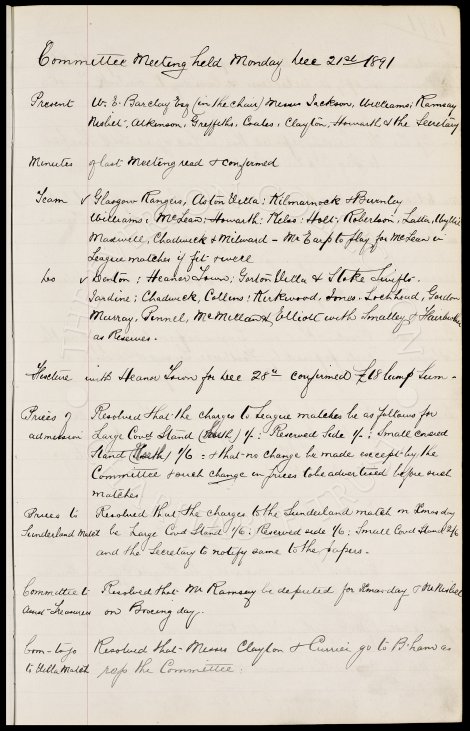 Committee Meeting held Monday Dec 21st 1891
Present W. E. Barclay Esq (in the chair) Messrs Jackson, Williams, Ramsay
Nisbet, Atkinson, Griffiths, Coates, Clayton, Howarth & the Secretary
Minutes of last Meeting read & confirmed
Team v Glasgow Rangers, Aston Villa: Kilmarnock & Burnley
Williams: McLean: Howarth: Kelso: Holt, Robertson, Latta, Wyllie
Maxwell, Chadwick & Milward - Mr Earp to play for McLean in
League matches if fit & well
Do v Denton: Heanor Town; Gorton Villa & Stoke Swifts.
Jardine; Chadwick, Collins: Kirkwood, Jones. Lochhead, Gordon
Murray, Pinnel, McMillan & Elliott with Smalley & Fairbrother
as Reserves.
Fixture with Heanor Town for Dec 28th confirmed £18 lump sum -
Prices of Resolved that the charges to League matches be as follows for
admission Large Covd Stand 1/-: Reserved Side 1/-: Small covered
Stand 1/6: & that no change be made except by the
Committee & such change in prices to be advertised before such
matches
Prices to Resolved that the charges to the Sunderland match on Xmas day
Sunderland Match be Large Covd Stand 1/6: Reserved side 1/6: Small Covd Stand 2/6
and the Secretary to notify same to the papers.
Committee to Resolved that Mr Ramsay be deputed for Xmas day & Mr Nisbet
Assist Treasurer on Boxing day.
Com - to go Resolved that Messrs Clayton & Currier go to B'ham as
to Villa Match rep the Committee.